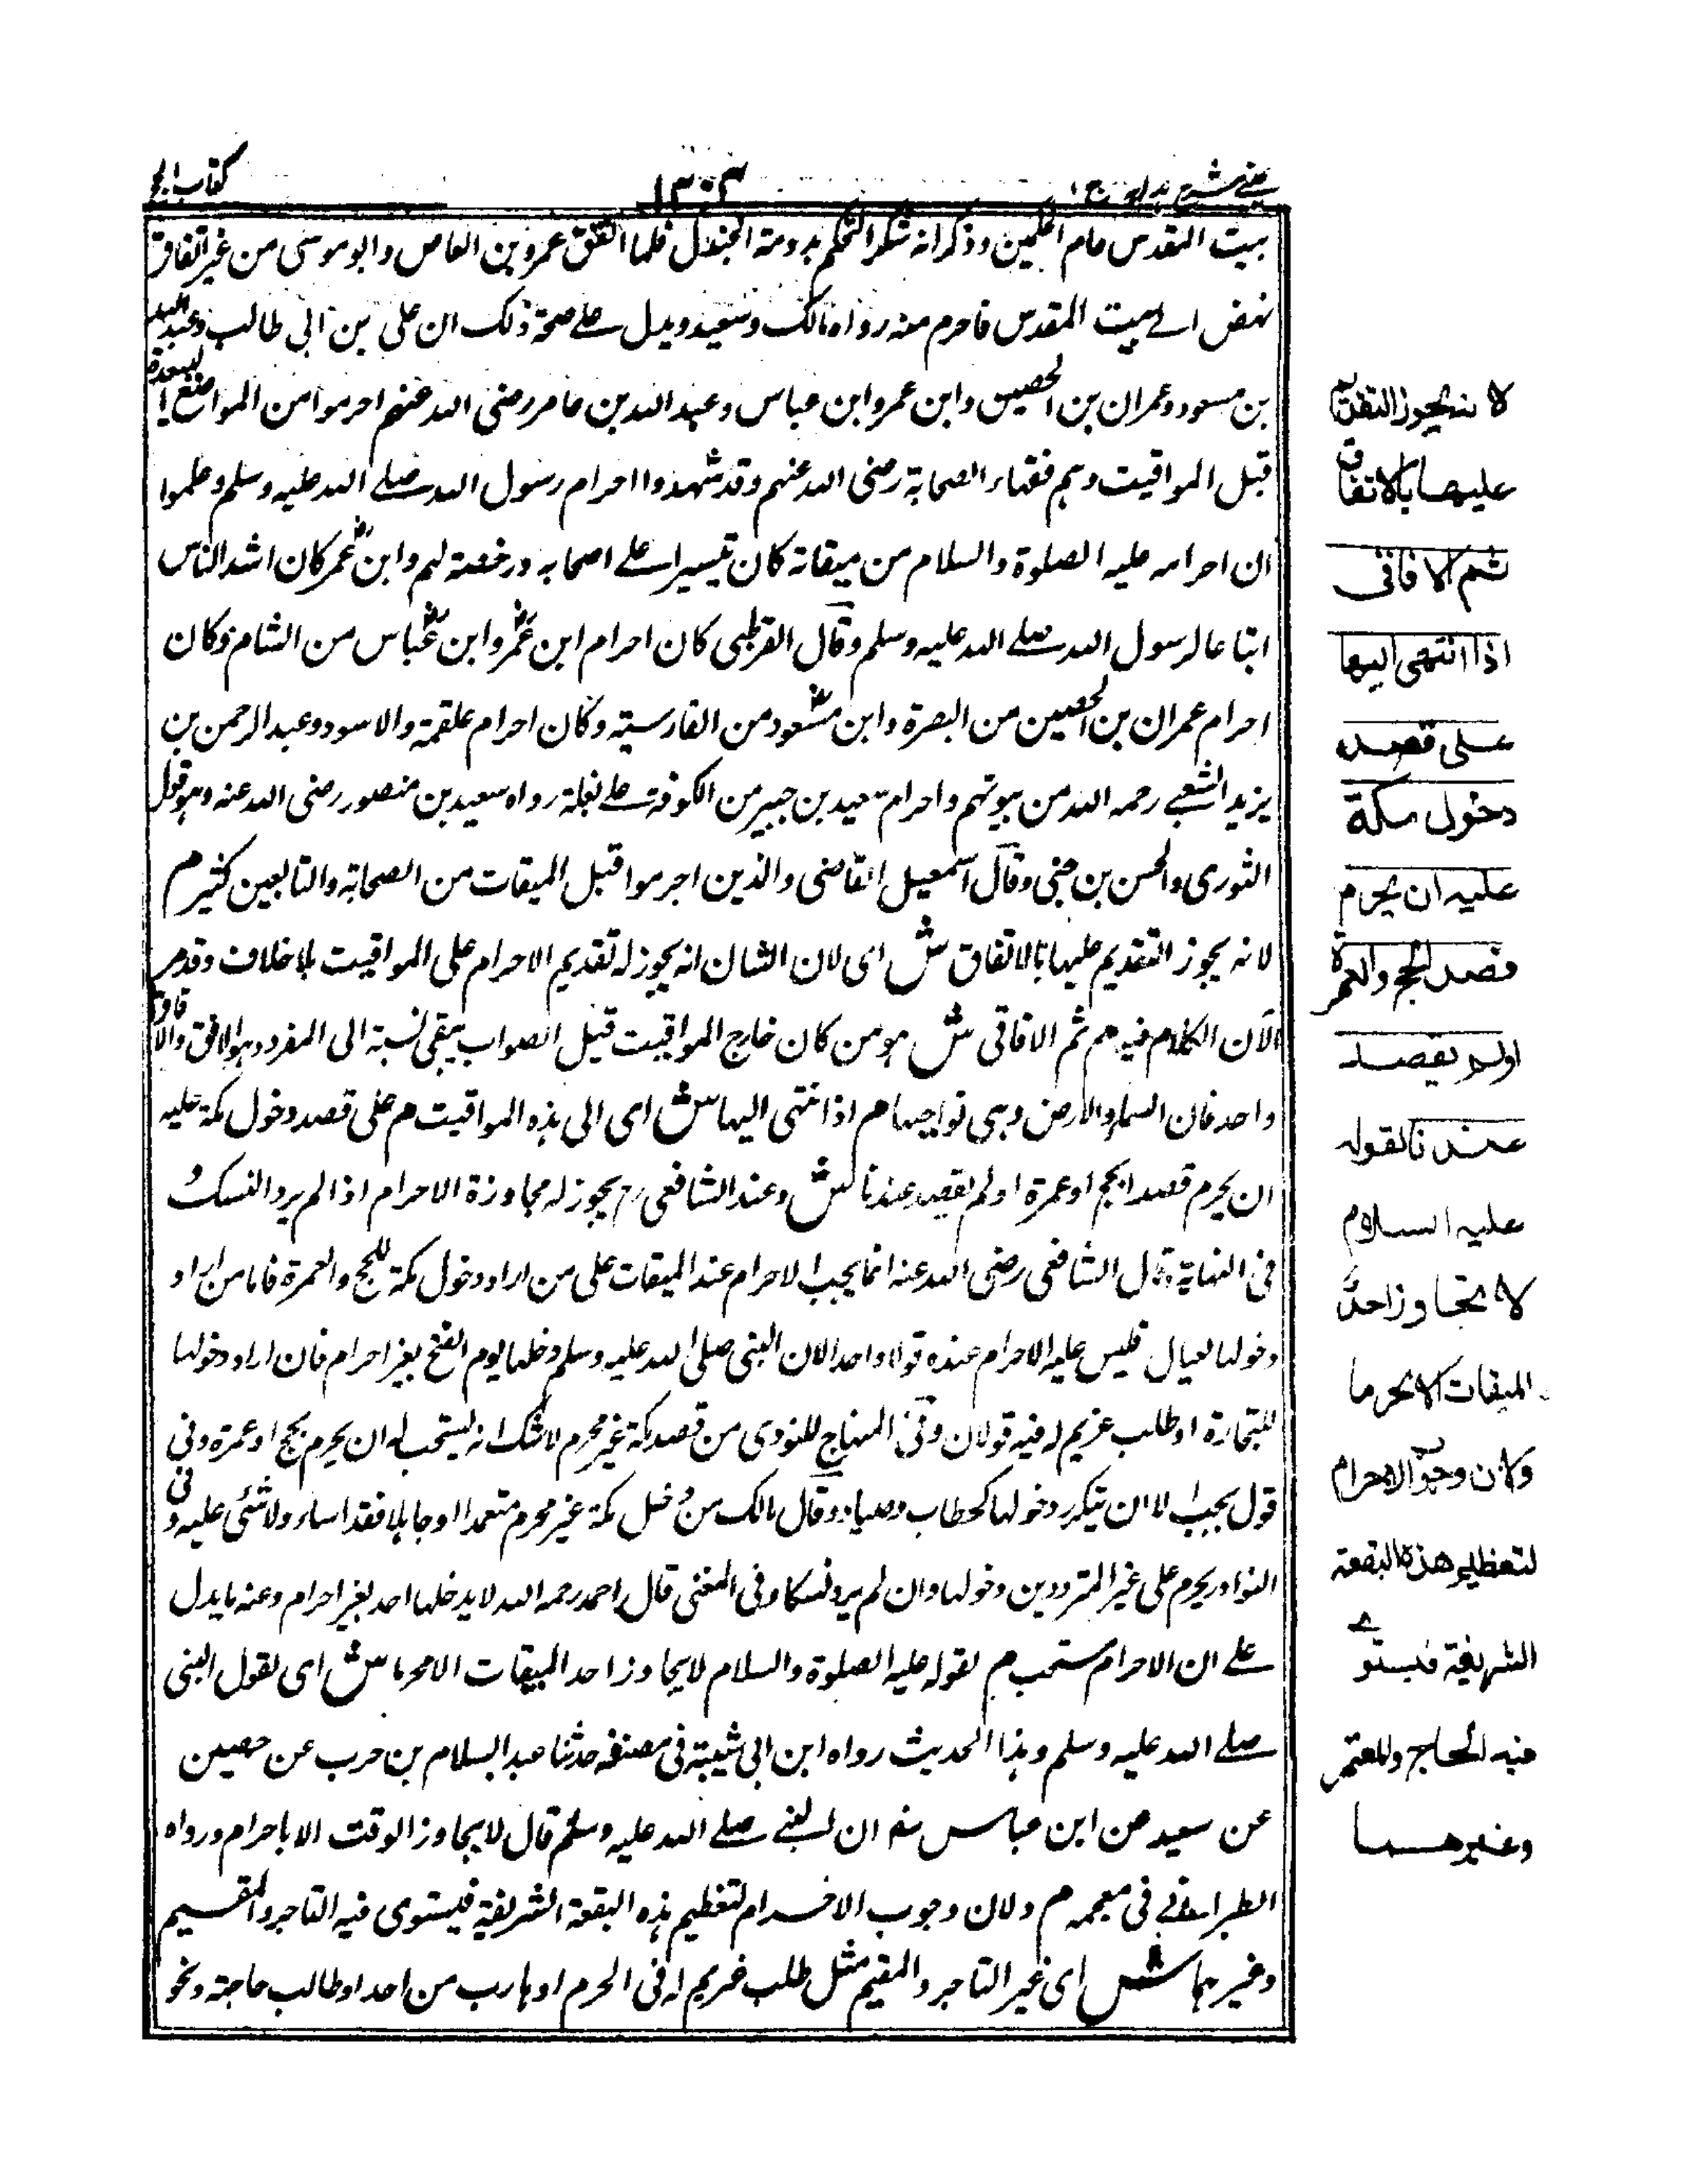 عینی شرح ہدایہ ج ۱
۱۳۰۳
کتاب الحج
بيت المقدس عام الحكمين وذكر انه شكر التحكم بدومة الجندل فلما اتفق عمرو بن العاص وابو موسى من غير اتفاق
نهض الے بيت المقدس فاحرم منه رواه مالك وسعيد ويدل علے صحة ذلك ان علی بن ابی طالب وعبد الله
بن مسعود وعمران بن الحصين وابن عمر وابن عباس وعبد الله بن عامر رضی الله عنهم احرموا من المواضع البعيدة
قبل المواقيت وهم فقهاء الصحابة رضی الله عنهم وقد شهدوا احرام رسول الله صلے الله عليه وسلم وعلموا
ان احرامه عليه الصلوة والسلام من ميقاته كان تيسيرا علے اصحابه ورخصة لهم وابن عمر كان اشد الناس
اتباعا لرسول الله صلے الله عليه وسلم وقال القرطبی كان احرام ابن عمر وابن عباس من الشام وكان
احرام عمران بن الحصين من البصرة وابن مسعود من القادسية وكان احرام علقمة والاسود وعبد الرحمن بن
يزيد الشعبے رحمه الله من بيوتهم واحرام سعيد بن جبير من الكوفة علے بغلة رواه سعيد بن منصور رضی الله عنه وهو قول
الثوری والحسن بن حنی وقال اسمعيل القاضی والذين احرموا قبل الميقات من الصحابة والتابعين كثير م
لانه يجوز التقديم عليها بالاتفاق ش ای لان الشان انه يجوز له تقديم الاحرام علی المواقيت بلا خلاف وقد مر
الآن الكلام فيه م ثم الافاقی ش هو من كان خارج المواقيت قيل الصواب يبقی نسبة الی المفرد وهو الافق والآفاق
واحد فان السماء والارض وهی نواحيها م اذا انتهی اليها ش ای الی هذه المواقيت م علی قصد دخول مكة عليه
ان يحرم قصد الحج او عمرة او لم يقصد عندنا ش وعند الشافعی رح يجوز له مجاوزة الاحرام اذا لم يرد النسك
فی النهاية قال الشافعی رضی الله عنه انما يجب الاحرام عند الميقات علی من اراد دخول مكة للحج والعمرة فاما من اراد
دخولها لعيال فليس عليه الاحرام عنده قولا واحدا لان النبی صلی الله عليه وسلم دخلها يوم الفتح بغير احرام فان اراد دخولها
للتجارة او طلب غريم له فيه قولان وفی المنهاج للنووی من قصد مكة غير محرم لا شك انه يستحب له ان يحرم بحج او عمرة وفی
قول يجب الا ان يتكرر دخولها كحطاب وصياد وقال مالك من دخل مكة غير محرم متعمدا او جاهلا فقد اساء ولا شئی عليه وفی
النوادر يحرم علی غير المترددين دخولها وان لم يرد نسكا وفی المغنی قال احمد رحمه الله لا يدخلها احد بغير احرام وعنه ما يدل
علے ان الاحرام مستحب م لقوله عليه الصلوة والسلام لا يجاوز احد الميقات الا محرما ش ای لقول النبی
صلے الله عليه وسلم وهذا الحديث رواه ابن ابی شيبة فی مصنفه حدثنا عبد السلام بن حرب عن حصين
عن سعيد عن ابن عباس رض ان النبے صلے الله عليه وسلم قال لا يجاوز الوقت الا باحرام ورواه
الطبرانے فی معجمه م ولان وجوب الاحرام لتعظيم هذه البقعة الشريفة فيستوی فيه التاجر والمقيم
وغيرهما ش ای غير التاجر والمقيم مثل طلب غريم له فی الحرم او هارب من احد او طالب حاجة ونحو
لانه يجوز التقديم
عليها بالاتفاق
ثم الافاقی
اذا انتهى اليها
على قصد
دخول مكة
عليه ان يحرم
قصد الحج والعمرة
او لم يقصد
عندنا لقوله
عليه السلام
لا يتجاوز احد
الميقات الا محرما
وكان وجوب الاحرام
لتعظيم هذه البقعة
الشريفة فيستوے
فيه الحاج والمعتمر
وغيرهما